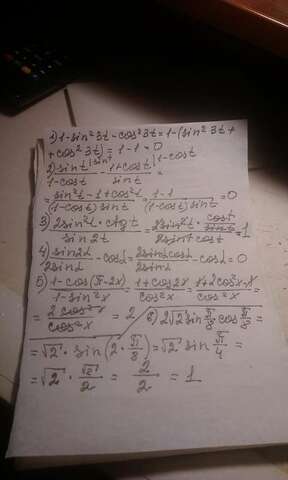 1) 1-sin²3t-cos²3t=1-(sin²3t+
+cos²3t)=1-1=0
2) sint/(1-cost) |sint - (1+cost)/sint |1-cost =
= (sin²t-1+cos²t)/((1-cost)sint) = (1-1)/((1-cost)sint) = 0
3) (2sin²t·ctgt)/(sin2t) = (2sin²t·cost/sint)/(2sint cost) = 1
4) sin2α/2sinα - cosα = 2sinαcosα/2sinα - cosα = 0
5) (1-cos(π-2x))/(1-sin²x) = (1+cos2x)/cos²x = (1+2cos²x-1)/cos²x =
= 2cos²x/cos²x = 2 6) 2√2 sin π/8 cos π/8 =
= √2·sin(2·π/8) = √2 sin π/4 =
= √2·√2/2 = 2/2 = 1